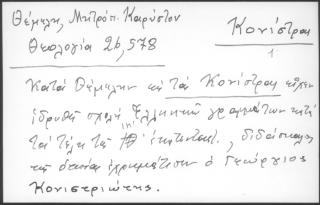 Θέμελη, Μητροπ. Καρύστου
Θεολογία 26, 578
Κονίστραι
1
Κατά Θέμελην εἰς τάς Κονίστρας εἶχεν
ἱδρυθῆ σχολή Ἑλληνικῶν γραμμάτων κατά
τά τέλη τοῦ ΙΘ' , διδάσκαλος
τῆς ὁποίας ἐχρημάτισεν ὁ Γεώργιος
Κονιστριώτης.